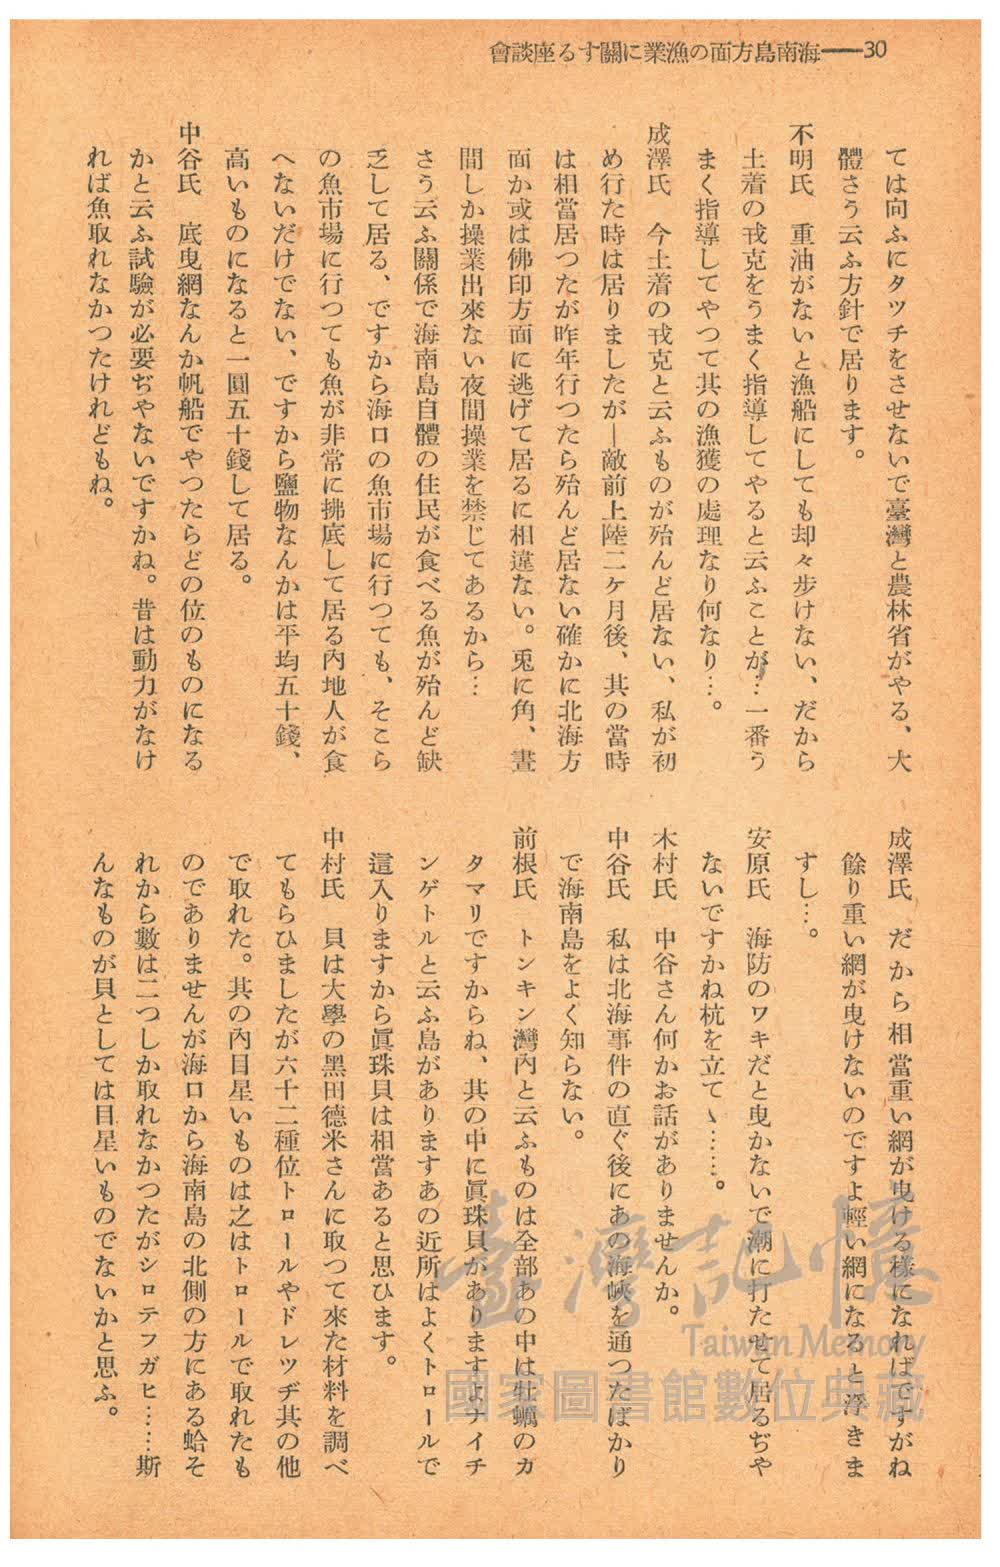 海南島方面の漁業に關する座談會━━30
ては向ふにタツチをさせないで臺灣と農林省がやる、大
體さう云ふ方針で居ります。
不明氏　重油がないと漁船にしても却々步けない、だから
土着の戎克をうまく指導してやると云ふことが…一番う
まく指導してやつて其の漁獲の處理なり何なり…。
成澤氏　今土着の戎克と云ふものが殆んど居ない、私が初
め行た時は居りましたが―敵前上陸二ケ月後、其の當時
は相當居つたが昨年行つたら殆んど居ない確かに北海方
面か或は佛印方面に逃げて居るに相違ない。兎に角、晝
間しか操業出來ない夜間操業を禁じてあるから…
さう云ふ關係で海南島自體の住民が食べる魚が殆んど缺
乏して居る、ですから海口の魚市場に行つても、そこら
の魚市場に行つても魚が非常に拂底して居る內地人が食
へないだけでない、ですから鹽物なんかは平均五十錢、
高いものになると一圓五十錢して居る。
中谷氏　底曳網なんか帆船でやつたらどの位のものになる
かと云ふ試驗が必要ぢやないですかね。昔は動力がなけ
れば魚取れなかつたけれどもね。
成澤氏　だから相當重い網が曳ける樣になればですがね
餘り重い網が曳けないのですよ輕い網になると浮きま
すし…。
安原氏　海防のワキだと曳かないで潮に打たせて居るぢや
ないですかね杭を立てゝ……。
木村氏　中谷さん何かお話がありませんか。
中谷氏　私は北海事件の直ぐ後にあの海峽を通つたばかり
で海南島をよく知らない。
前根氏　トンキン灣內と云ふものは全部あの中は牡蠣のカ
タマリですからね、其の中に眞珠貝がありますよナイチ
ンゲトルと云ふ島がありますあの近所はよくトロールで
這入りますから眞珠貝は相當あると思ひます。
中村氏　貝は大學の黑田德米さんに取つて來た材料を調べ
てもらひましたが六千二種位トロールやドレツヂ其の他
で取れた。其の內目星いものは之はトロールで取れたも
のでありませんが海口から海南島の北側の方にある蛤そ
れから數は二つしか取れなかつたがシロテフガヒ……斯
んなものが貝としては目星いものでないかと思ふ。
臺灣記憶
Taiwan Memory
國家圖書館數位典藏